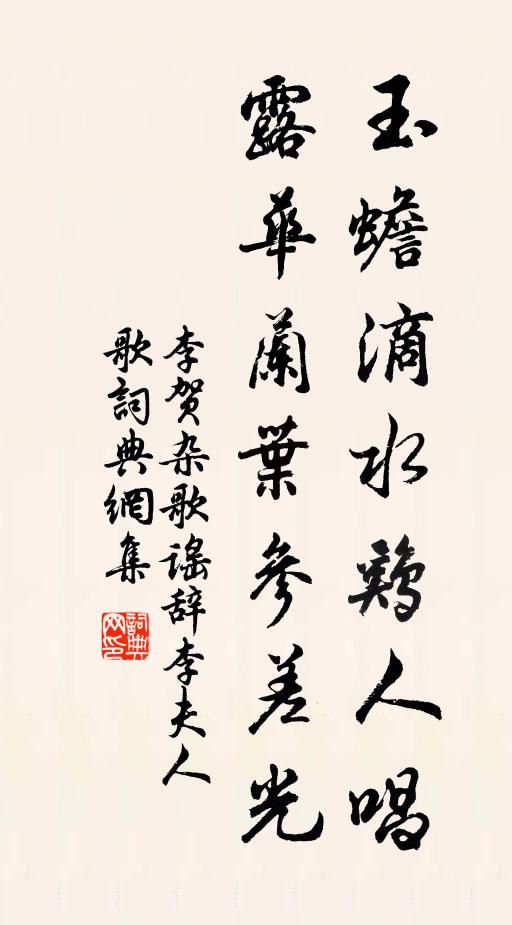 玉蟾滴水鷄人唱
露華蘭葉參差光
李贺杂歌谣辞李夫人
歌詞典網集
詞典网印